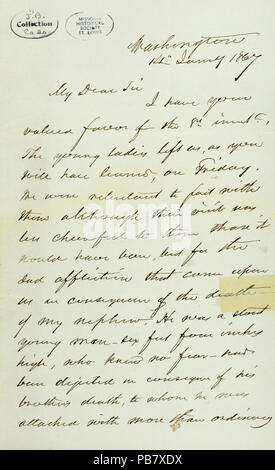 J.B.
Collection
Eads
MISSOURI
HISTORICAL
SOCIETY
ST. LOUIS
Washington
14th Jany 1867
My Dear Sir
I have your
valued favor of the 8th inst.,
The young ladies left us, as you
will have learned on Friday.
We were reluctant to part with
them although their visit was
less cheerful to them than it
would have been, but for the
sad affliction that came upon
us in consequence of the death
of my nephew. He was a stout
young man - six feet four inches
high, who knew no fear - had
been dejected in consequence of his
brothers death, to whom he was
attached with more than ordinary
alamy stock photo
alamy
PB7XDX
www.alamy.com